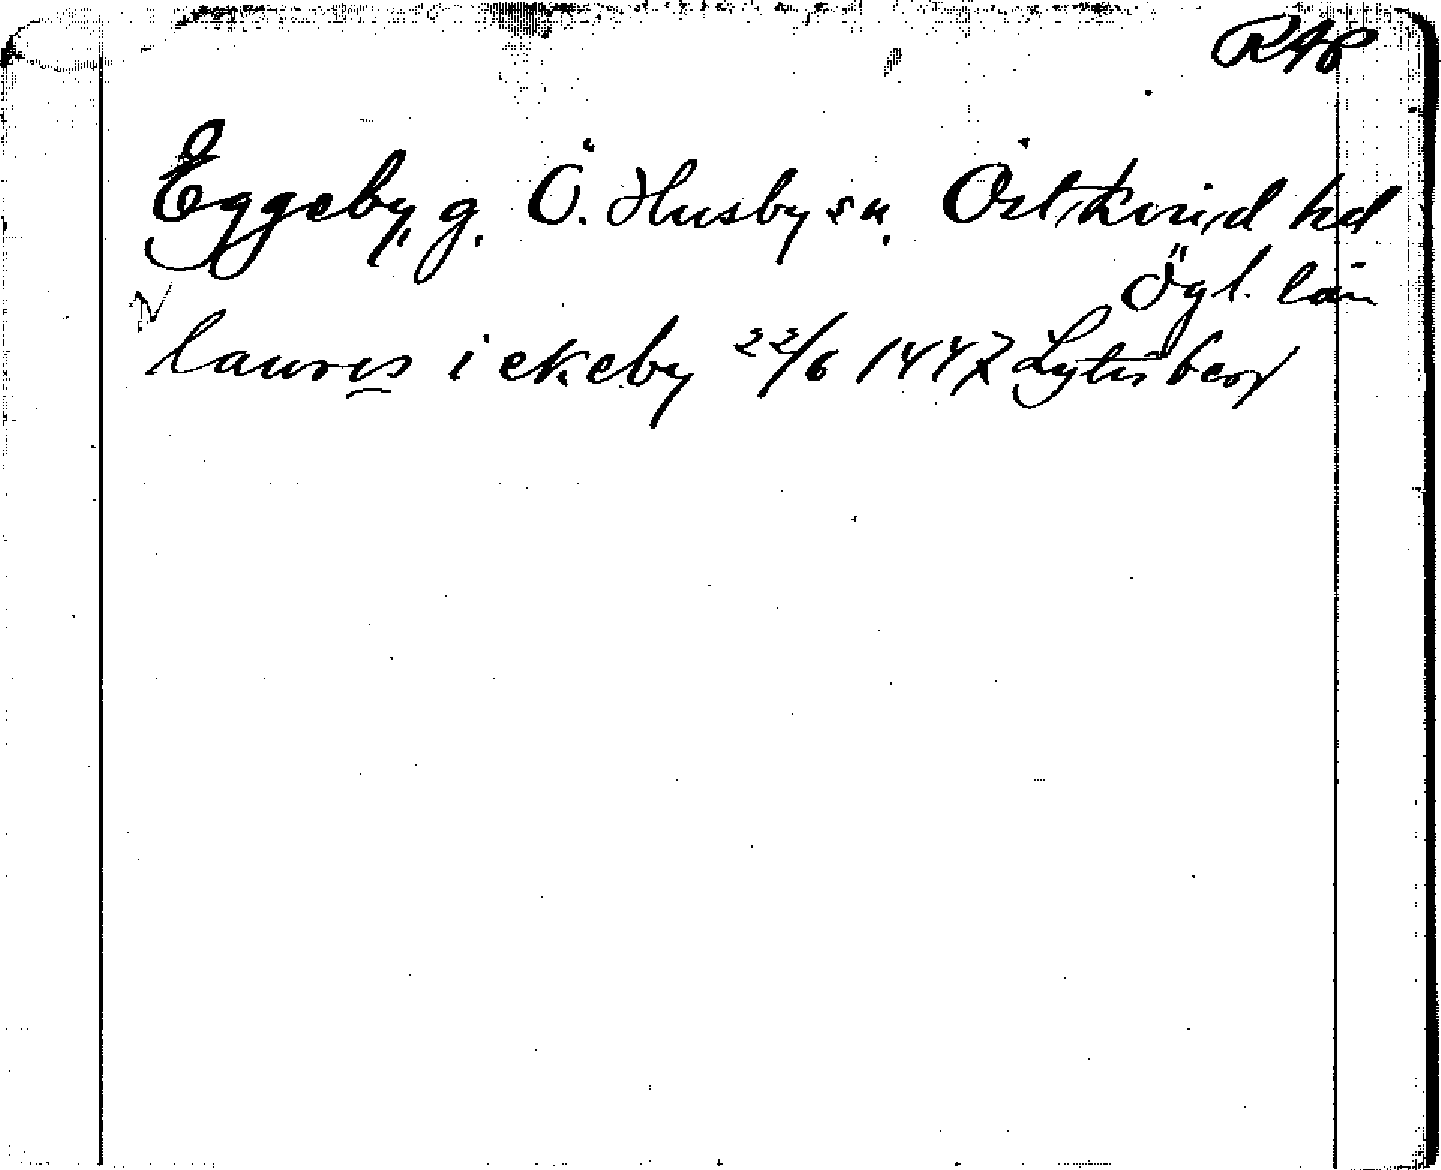 RAp
Eggeby, g. Ö. Husby sn. Östkind hd
Ögl. län
laurıs i ekeby 22/6 1447